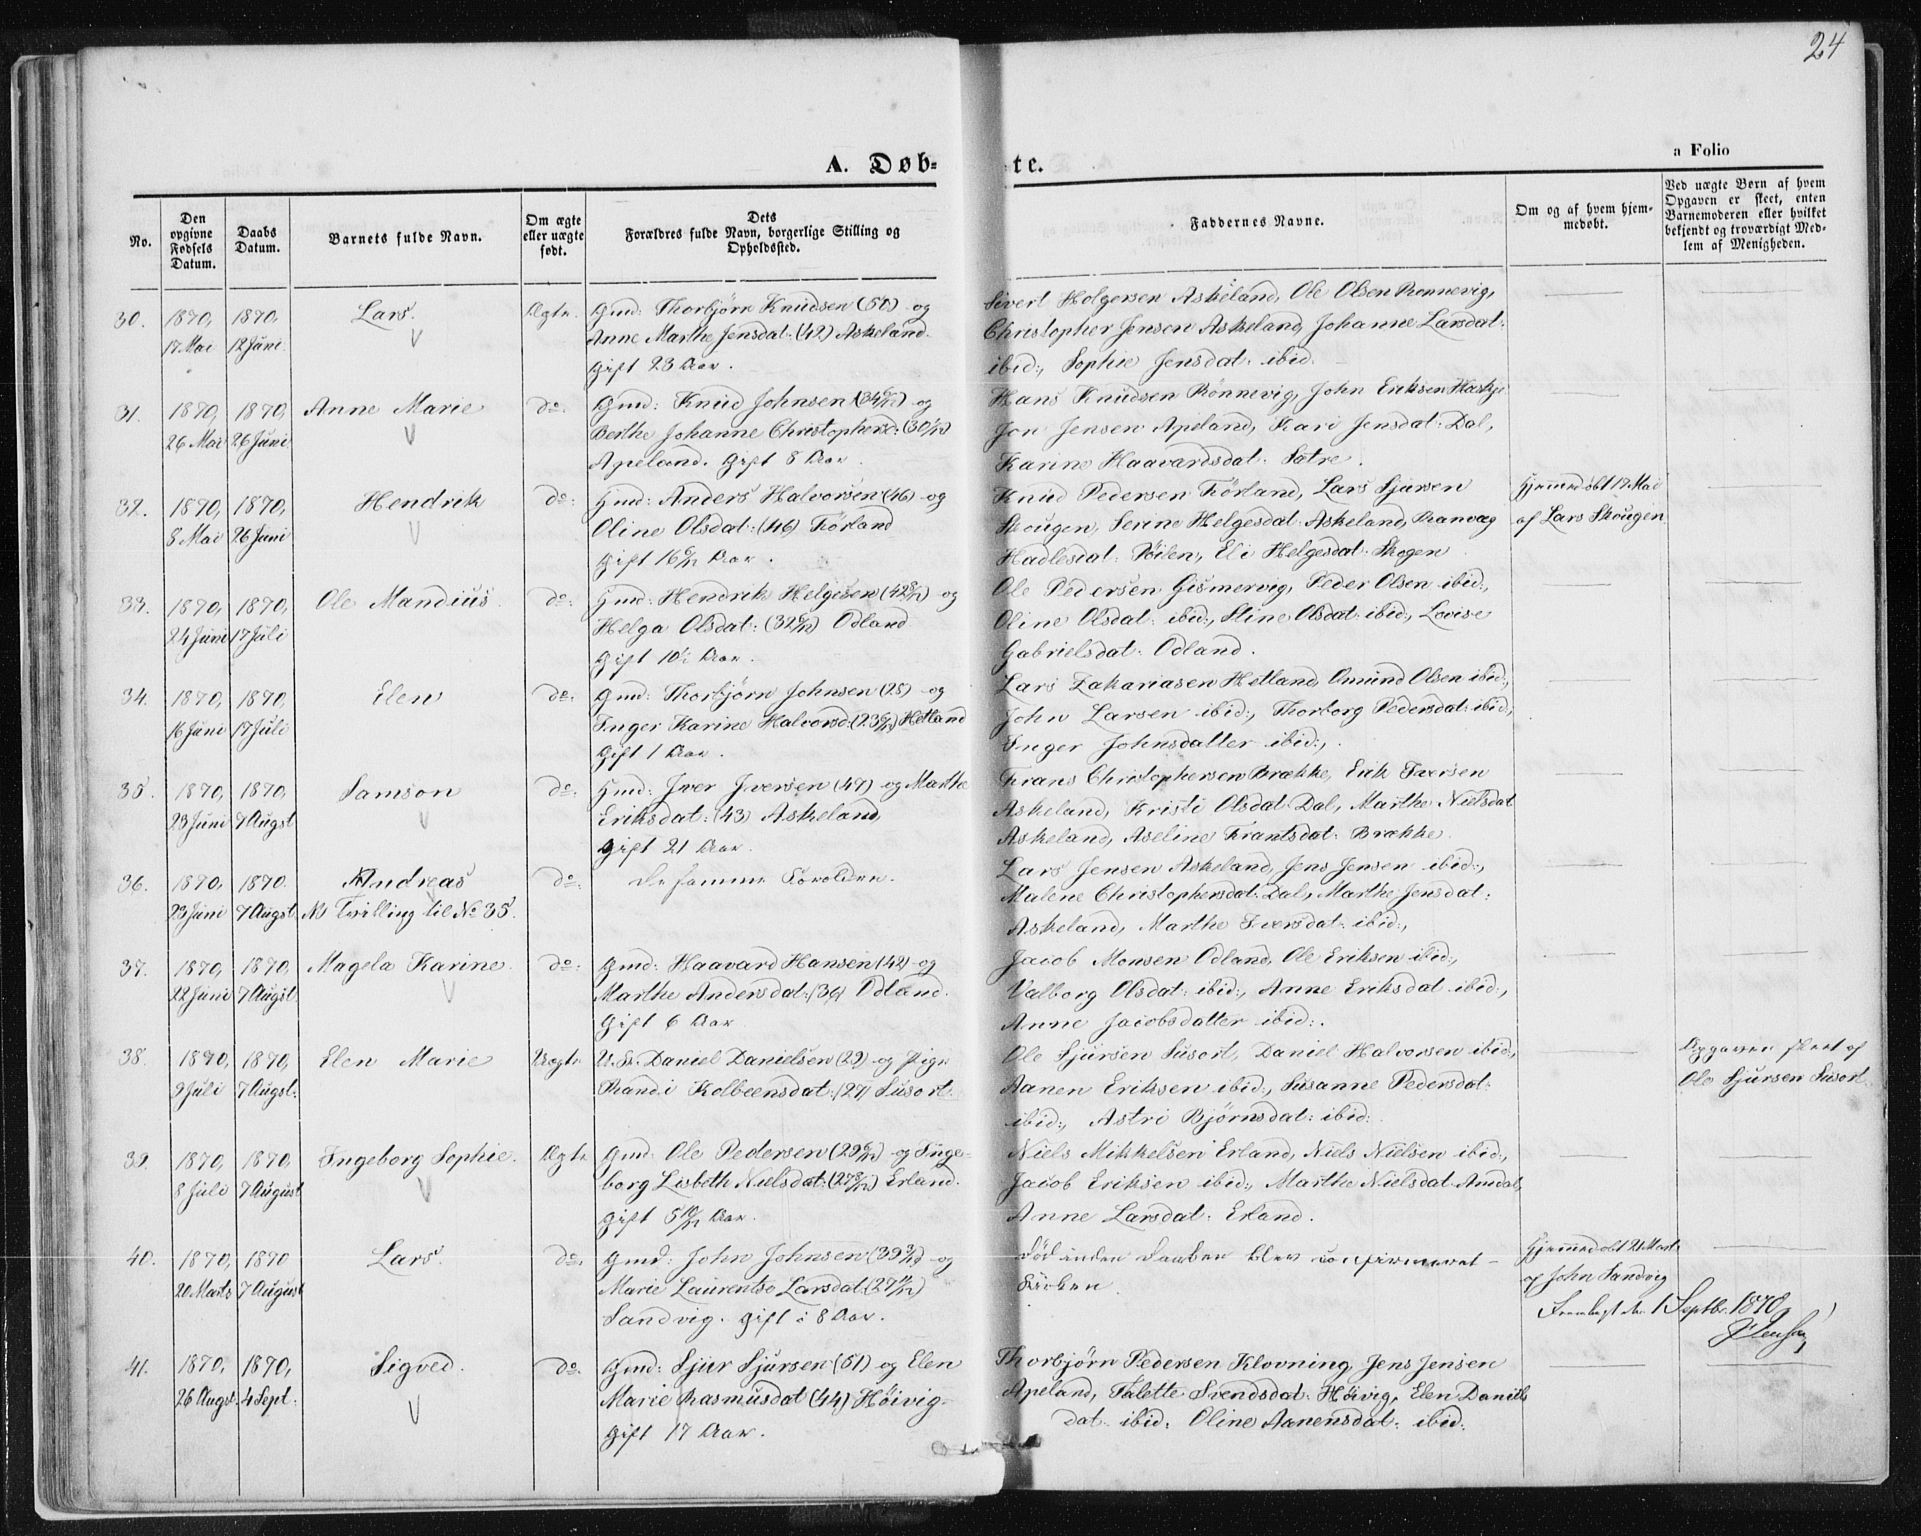 24
A. Døb-
te.
a Folio
No.
Den opgivne Fødsels Datum.
Daabs Datum.
Barnets fulde Navn.
Om ægte eller uægte født.
Dets Forældres fulde Navn, borgerlige Stilling og Opholdssted.
Faddernes Navne.
Om og af hvem hjemmedøbt.
Ved uægte Børn af hvem Opgaven er skeet, enten Barnemoderen eller hvilket bekjendt og troværdigt Medlem af Menigheden.
30. 1870, 17 Mai
1870, 12 Juni
Lars.
Ægte.
Gmd: Thorbjørn Knudsen og
Anne Marthe Jensdat: (42) Askeland.
Gift 23 Aar.
Sivert Holgersen Askeland, Ole Olsen Rønnevig,
Christopher Jensen Askeland, Johanne Larsdat:
ibid:, Sophie Jensdat: ibid.
31. 1870, 26 Mai
1870, 26 Juni
Anne Marie
do:
Gmd: Knud Johnsen og
Berthe Johanne Christophersd:
Apeland. Gift 8 Aar.
Hans Knudsen Rønnevig, John Eriksen
Jon Jensen Apeland, Kari Jensdat: Dal,
Karine Haavardsdat: Sætre.
32. 1870, 8 Mai
1870, 26 Juni
Hendrik
do:
Hmd: Anders Halvorsen (46) og
Oline Olsdat: (46) Førland
Gift 16 6/12 Aar.
Knud Pedersen Førland, Lars Sjursen
Skougen, Serine Helgesdat: Askeland, Ranvæg
Hadlesdat: Eli Helgesdat: Skogen
Hjemmedøbt 17 Mai
af Lars Skougen
33. 1870, 24 Juni
1870, 17 Juli
Ole Mandius.
do:
Hmd: Hendrik Helgesen (42 8/12) og
Helga Olsdat: (32 6/12) Odland
Gift 10 1/2 Aar.
Ole Pedersen Gismervig, Peder Olsen ibid:,
Oline Olsdat: ibid:, Stine Olsdat: ibid:, Lovise
Gabrielsdat: Odland.
34. 1870, 16 Juni
1870, 17 Juli
Elen
do:
Gmd: Thorbjørn Johnsen (28) og
Inger Karine Halvorsd: (23 6/12) Hetland
Gift 1 Aar.
Lars Zakariasen Hetland, Omund Olsen ibid:,
John Larsen ibid:, Thorborg Pedersdat: ibid:,
Inger Johnsdatter ibid:,
35. 1870, 23 Juni
1870, 7 Augst
Samson
do:
Hmd: Iver Iversen (47) og Marthe
Eriksdat: (43) Askeland,
Gift 21 Aar.
Frans Christophersen Brække, Erik Iversen
Askeland, Kristi Olsdat: Dal, Marthe Nielsdat
Askeland, Aseline Frantsdat: Brække.
36. 1870, 23 Juni
1870. 7 Augst.
Andreas
Tvilling til No 35.
do:
de samme Forældre.
Lars Jensen Askeland, Jens Jensen ibid:,
Malene Christophersdat: Dal, Marthe Jensdat:
Askeland, Marthe Iversdat: ibid:,
37. 1870, 22 Juni
1870, 7 Augst.
Magela Karine.
do:
Gmd: Haavard Hansen (42) og
Marthe Andersdat: (36) Odland.
Gift 6 Aar
Jacob Monsen Odland, Ole Eriksen ibid:,
Valborg Olsdat: ibid:, Anne Eriksdat: ibid:,
Anne Jacobsdatter ibid:.
38. 1870, 9 Juli
1870, 7 Augst:
Elen Marie
Uægte
Daniel Danielsen (29) og Pige
Randi Kolbeensdat: (27) Susort.
Ole Sjursen Susort, Daniel Halvorsen ibid:,
Aanen Eriksen ibid:, Susanne Pedersdat:
ibid:, Astri Bjørnsdat: ibid:
Opgaven skeet af
Ole Sjursen Susort.
39. 1870, 8 Juli
1870, 7 August
Ingeborg Sophie.
Ægte
Gmd: Ole Pedersen (29 6/12) og Inge-
borg Lisbeth Nielsdat: (27 8/12) Erland.
Gift 5 10/12 Aar.
Niels Mikkelsen Erland, Niels Nielsen ibid:,
Jacob Eriksen ibid:, Marthe Nielsdat: Amdal,
Anne Larsdat: Erland.
40. 1870, 20 Marts
1870 7 August
Lars.
do.
Gmd: John Johnsen (39 3/12) og
Marie Laurentse Larsdat: (27 11/12)
Sandvig. Gift i 8 Aar.
Død inden Daaben blev confirmeret i
Kirken.
Hjemmedøbt 21 Marts
af John Sandvig
1 Septbr. 1870
41. 1870, 26 Augst
1870, 4 Sept:
Sigved.
do.
Gmd: Sjur Sjursen (51) og Elen
Marie Rasmusdat (44) Høivig.
Gift 17 Aar.
Thorbjørn Pedersen Klovning, Jens Jensen
Apeland, Talette Svendsdat: Høivig, Elen Daniels
dat: ibid: Oline Aanensdat: ibid: